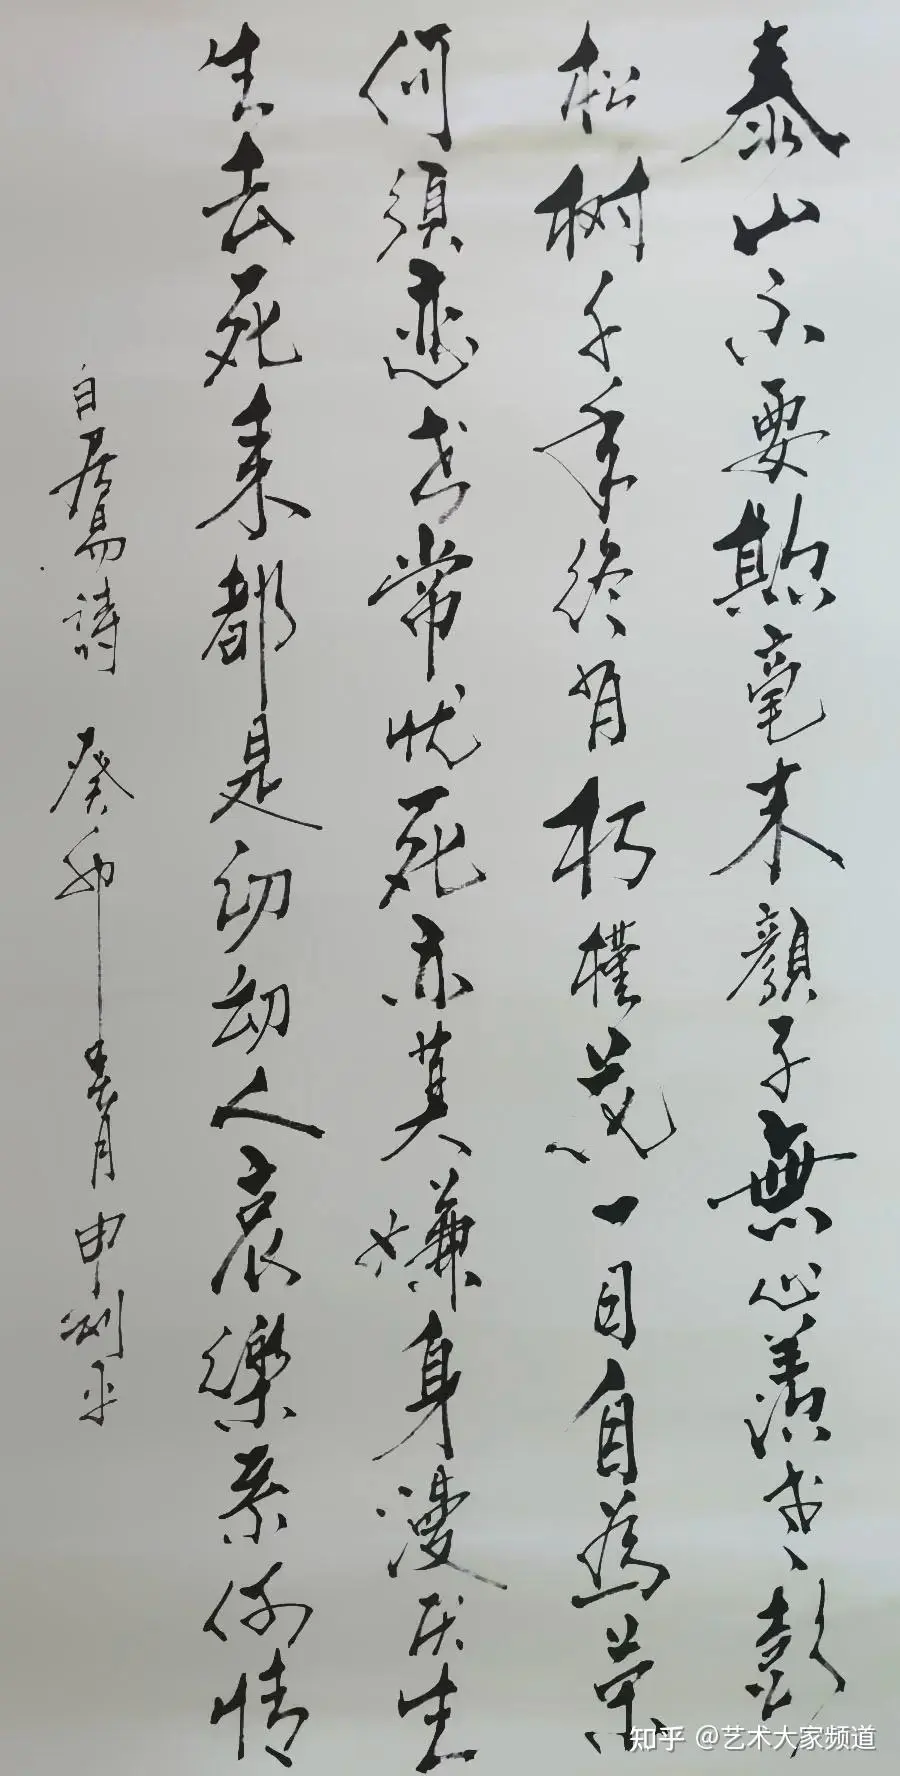 泰山不要欺毫末顏子無心羨老彭
松树千年終朽槿花一日自為榮
何須戀世常忧死亦莫嫌身漫厌生
生去死来都是幻幻人哀樂系何情
白居易詩 癸卯春月 申平
知乎 @艺术大家频道